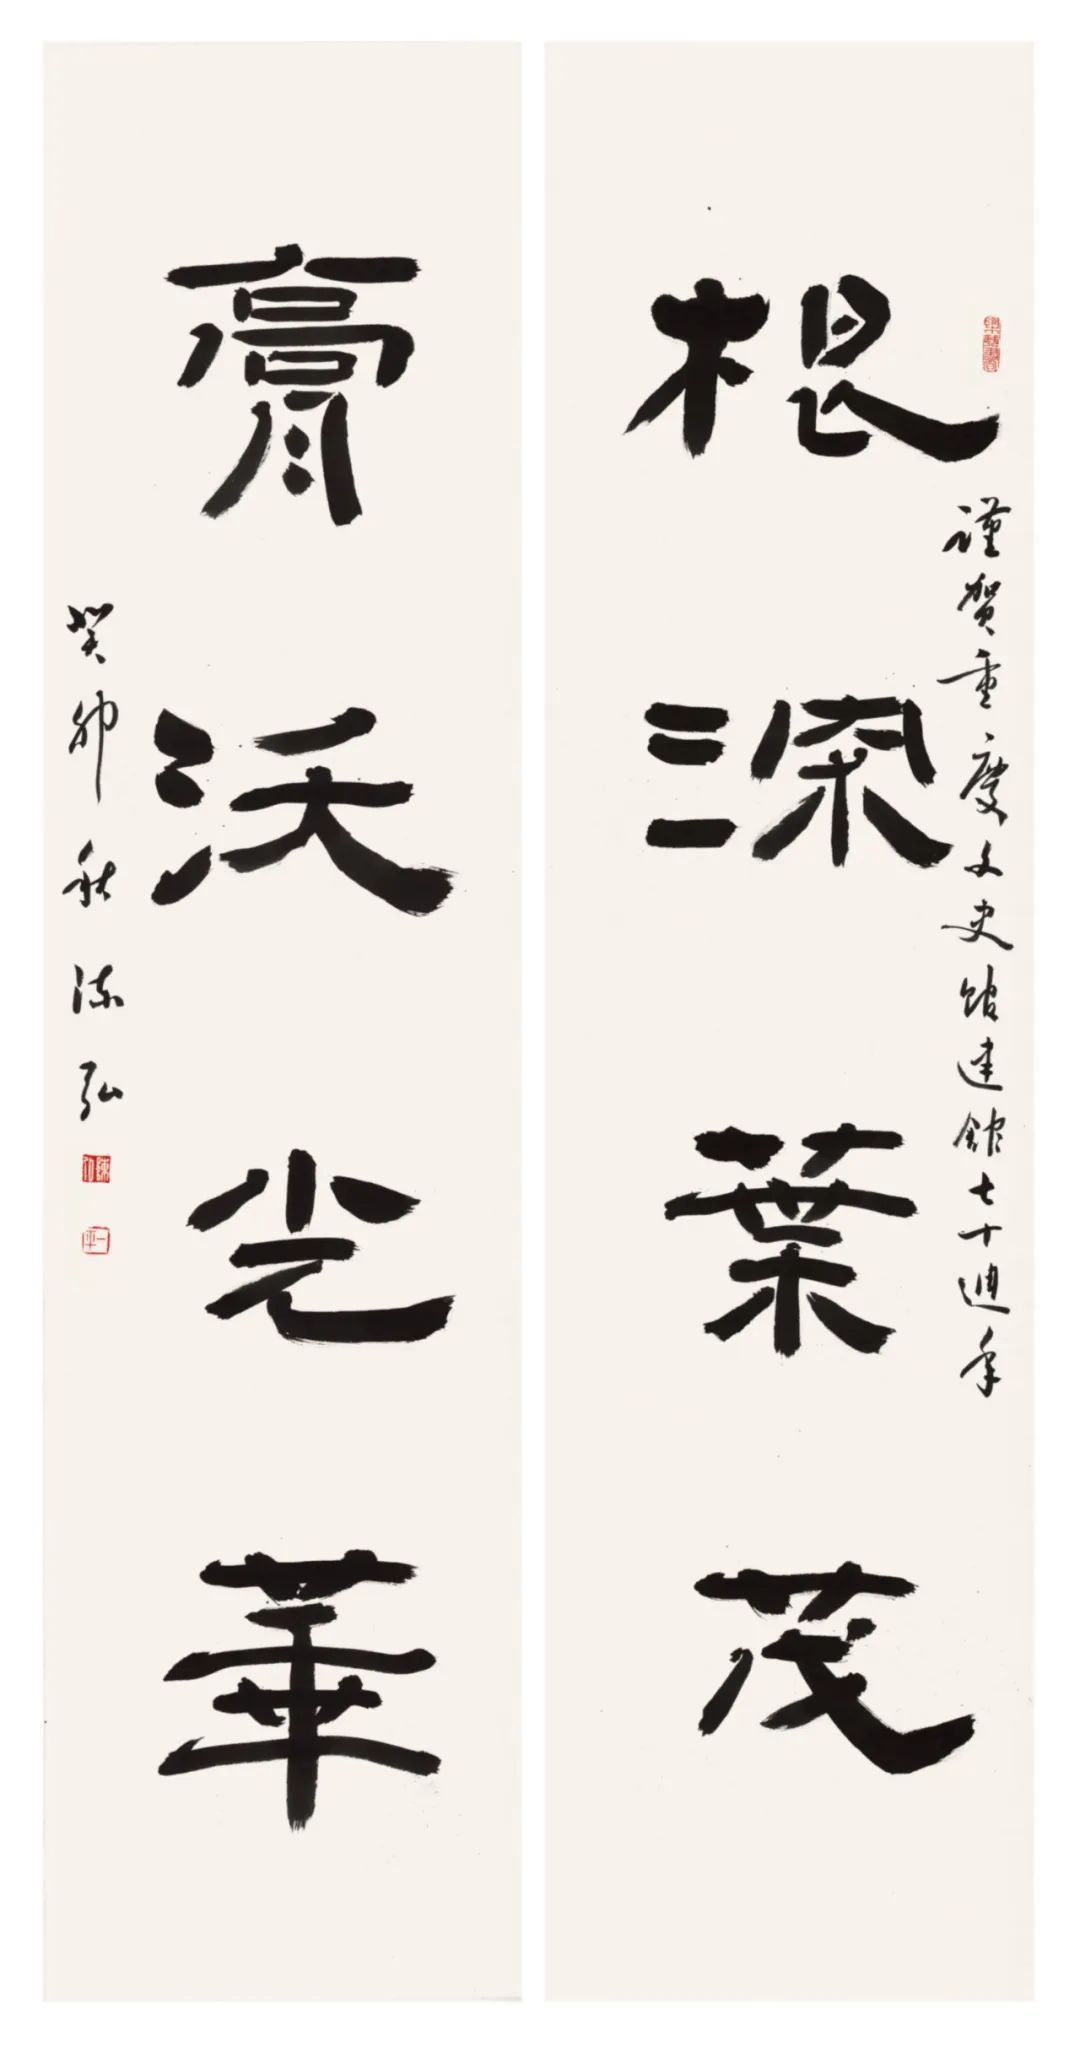 謹贺重慶文史館建館七十週年
根深葉茂
膏沃光華
癸卯秋陈弘